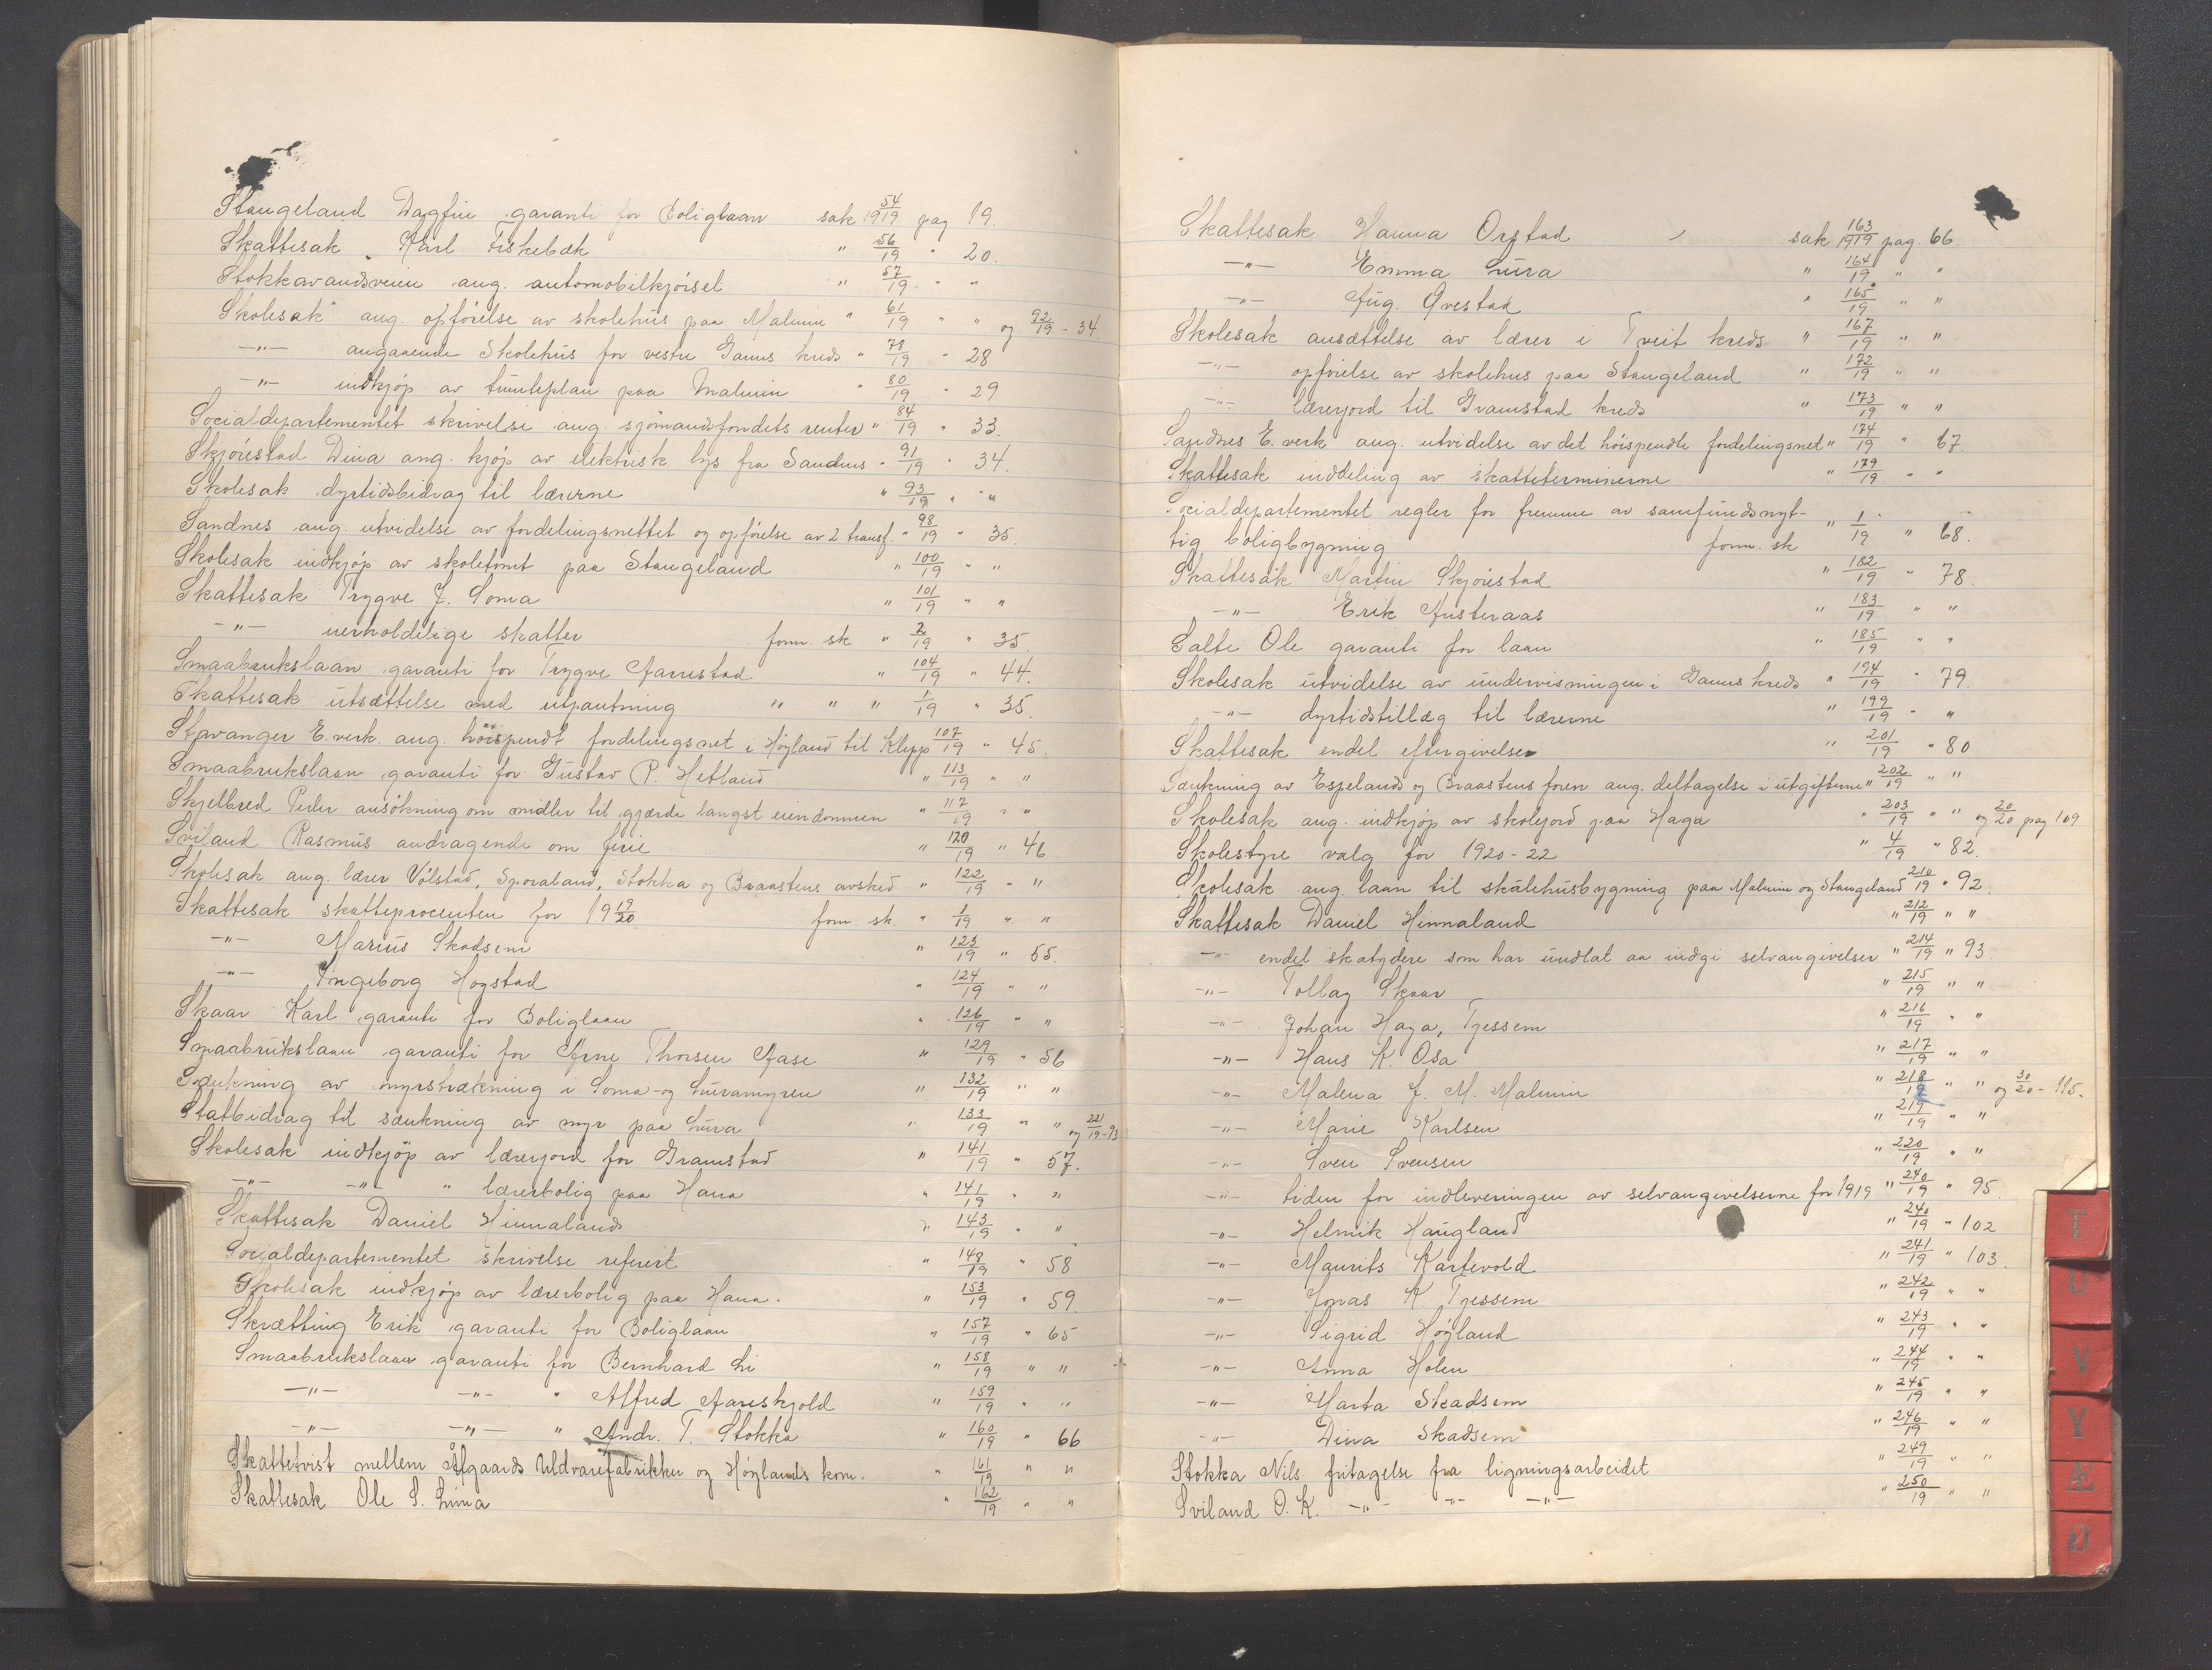 Stangeland Dagfin garanti for Boliglaan sak 54/1919 pag 19.
Skattesak Karl Fiskebæk " 56/19 " 20.
Stokkavandsveien ang. automobilkjørsel " 57/19 " "
Skolesak ang. opførelse av skolehus paa Malmin " 61/19 " " og 92/19 - 34
—"— angaaende Skolehus for vestre Ganns kreds " 78/19 " 28
—"— indkjøp av tomteplan paa Malmin " 80/19 " 29
Socialdepartementet skrivelse ang. sjømandsfondets renter " 84/19 " 33.
Skjørestad Dina ang. kjøp av elektrisk lys fra Sandnes " 91/19 " 34.
Skolesak dyrtidsbidrag til lærerne " 93/19 " "
Sandnes ang. utvidelse av fordelingsnettet og opførelse av 2 transf. " 98/19 " 35.
Skolesak indkjøp av skoletomt paa Stangeland " 100/19 " "
Skattesak Trygve J. Soma " 101/19 " "
—"— uerholdelige skatter form. sk " 2/19 " 35.
Smaabrukslaan garanti for Trygve Aarrestad " 104/19 " 44.
Skattesak utsættelse med utpantning " " " 1/19 " 35.
Stavanger E.verk. ang. høispendt fordelingsnet i Høyland til Klepp 107/19 " 45.
Smaabrukslaan garanti for Gustav P. Hetland " 113/19 " "
Skjelbred Peder ansøkning om midler til gjærde langst eiendommen " 117/19 " "
Sviland Rasmus andragende om ferie " 120/19 " 46
Skolesak ang. lærer Vølstad, Sporaland, Stokka og Braastens avsked " 122/19 " "
Skattesak skatteprocenten for 1919/20 form. sk. " 1/19 " "
—"— Marius Skadsem " 123/19 " 55.
—"— Ingeborg Hogstad " 124/19 " "
Skaar Karl garanti for Boliglaan " 126/19 " "
Smaabrukslaan garanti for Arne Thorsen Aase " 129/19 " 56
Sænkning av myrstrækning i Soma- og Luramyren " 132/19 " "
Statbidrag til sænkning av myr paa Lura " 133/19 " " og 221/19 - 93
Skolesak indkjøp av lærerjord for Gramstad " 141/19 " 57.
—"— —"— " lærerbolig paa Hana " 141/19 " "
Skattesak Daniel Hinnaland " 143/19 " "
Socialdepartementet skrivelse referert " 148/19 " 58
Skolesak indkjøp av lærerbolig paa Hana. " 153/19 " 59.
Skrætting Erik garanti for Boliglaan " 157/19 " 65
Smaabrukslaan garanti for Bernhard Li " 158/19 " "
—"— —"— " Alfred Aareskjold " 159/19 " "
—"— —"— " Andr. T. Stokka " 160/19 " 66
Skattetvist mellem Ålgaards Uldvarefabrikker og Høylands kom. " 161/19 " "
Skattesak Ole S. Lima " 162/19 " "
Skattesak Hanna Orstad sak 163/1919 pag. 66.
—"— Emma Lura " 164/19 " "
—"— Aug. Qvestad " 165/19 " "
Skolesak ansættelse av lærer i Tveit kreds " 167/19 " "
—"— opførelse av skolehus paa Stangeland " 172/19 " "
—"— lærerjord til Gramstad kreds " 173/19 " "
Sandnes E.verk ang. utvidelse av det høispendte fordelingsnet " 174/19 " 67.
Skattesak inddeling av skatteterminerne " 179/19 " "
Socialdepartementet regler for fremme av samfundsnyt-
tig boligbygning form. sk " 1/19 " 68.
Skattesak Martin Skjørestad " 182/19 " 78.
—"— Erik Austeraas " 183/19 " "
Salte Ole garanti for laan " 185/19 " "
Skolesak utvidelse av undervisningen i Ganns kreds " 194/19 " 79.
—"— dyrtidstillæg til lærerne " 199/19 " "
Skattesak endel eftergivelser " 201/19 " 80
Sænkning av Espelands og Braastens foren ang. deltagelse i utgifterne " 202/19 " "
Skolesak ang. indkjøp av skolejord paa Haga " 203/19 " " og 20/20 pag 109
Skolestyre valg for 1920-22 " 4/19 " 82.
Skolesak ang. laan til skolehusbygning paa Malmin og Stangeland 210/19 " 92.
Skattesak Daniel Hinnaland " 212/19 " "
—"— endel skatydere som har undlat aa indgi selvangivelser " 214/19 " 93.
—"— Tollag Skaar " 215/19 " "
—"— Johan Haga, Tjessem " 216/19 " "
—"— Hans K. Osa " 217/19 " "
—"— Malena J. M. Malmin " 218/19 " " og 30/20 - 115.
—"— Marie Karlsen " 219/19 " "
—"— Sven Svensen " 220/19 " "
—"— tiden for indleveringen av selvangivelserne for 1919 " 240/19 " 95
—"— Helmik Haugland " 240/19 " 102
—"— Maurits Kartevold " 241/19 " 103.
—"— Jonas K Tjessem " 242/19 " "
—"— Sigrid Høyland " 243/19 " "
—"— Anna Holen " 244/19 " "
—"— Marta Skadsem " 245/19 " "
—"— Dina Skadsem " 246/19 " "
Stokka Nils fritagelse fra ligningsarbeidet " 249/19 " "
Sviland O. K. —"— —"— —"— " 250/19 " "
T
U
V
Y
Æ
Ø